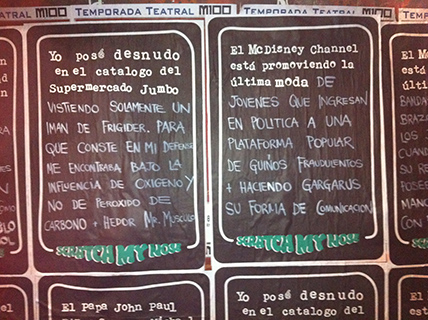 TEMPORADA TEATRAL M100 TEMPORADA TEATRAL M100 TEMPORADA
Yo posé desnudo
en el catalogo del
Supermercado Jumbo
VISTIENDO SOLAMENTE UN
IMAN DE FRIGIDER. PARA
QUE CONSTE EN MI DEFENSA
ME ENCONTRABA BAJO LA
INFLUENCIA DE OXIGENO Y
NO DE PEROXIDO DE
CARBONO + HEDOR MR. MUSCULO
SCRATCH MY NOSE
El McDisney Channel
está promoviendo la
última moda DE
JOVENES QUE INGRESAN
EN POLITICA A UNA
PLATAFORMA POPULAR
DE GUIÑOS FRAUDULENTOS
+ HACIENDO GARGARUS
SU FORMA DE COMUNICACION
SCRATCH MY NOSE
El Mc
está
última
BANDA
BRAZA
LOS
CUAND
SU
POSES
MANO
CON
El Papa John Paul
Yo posé desnudo
en el catalogo del